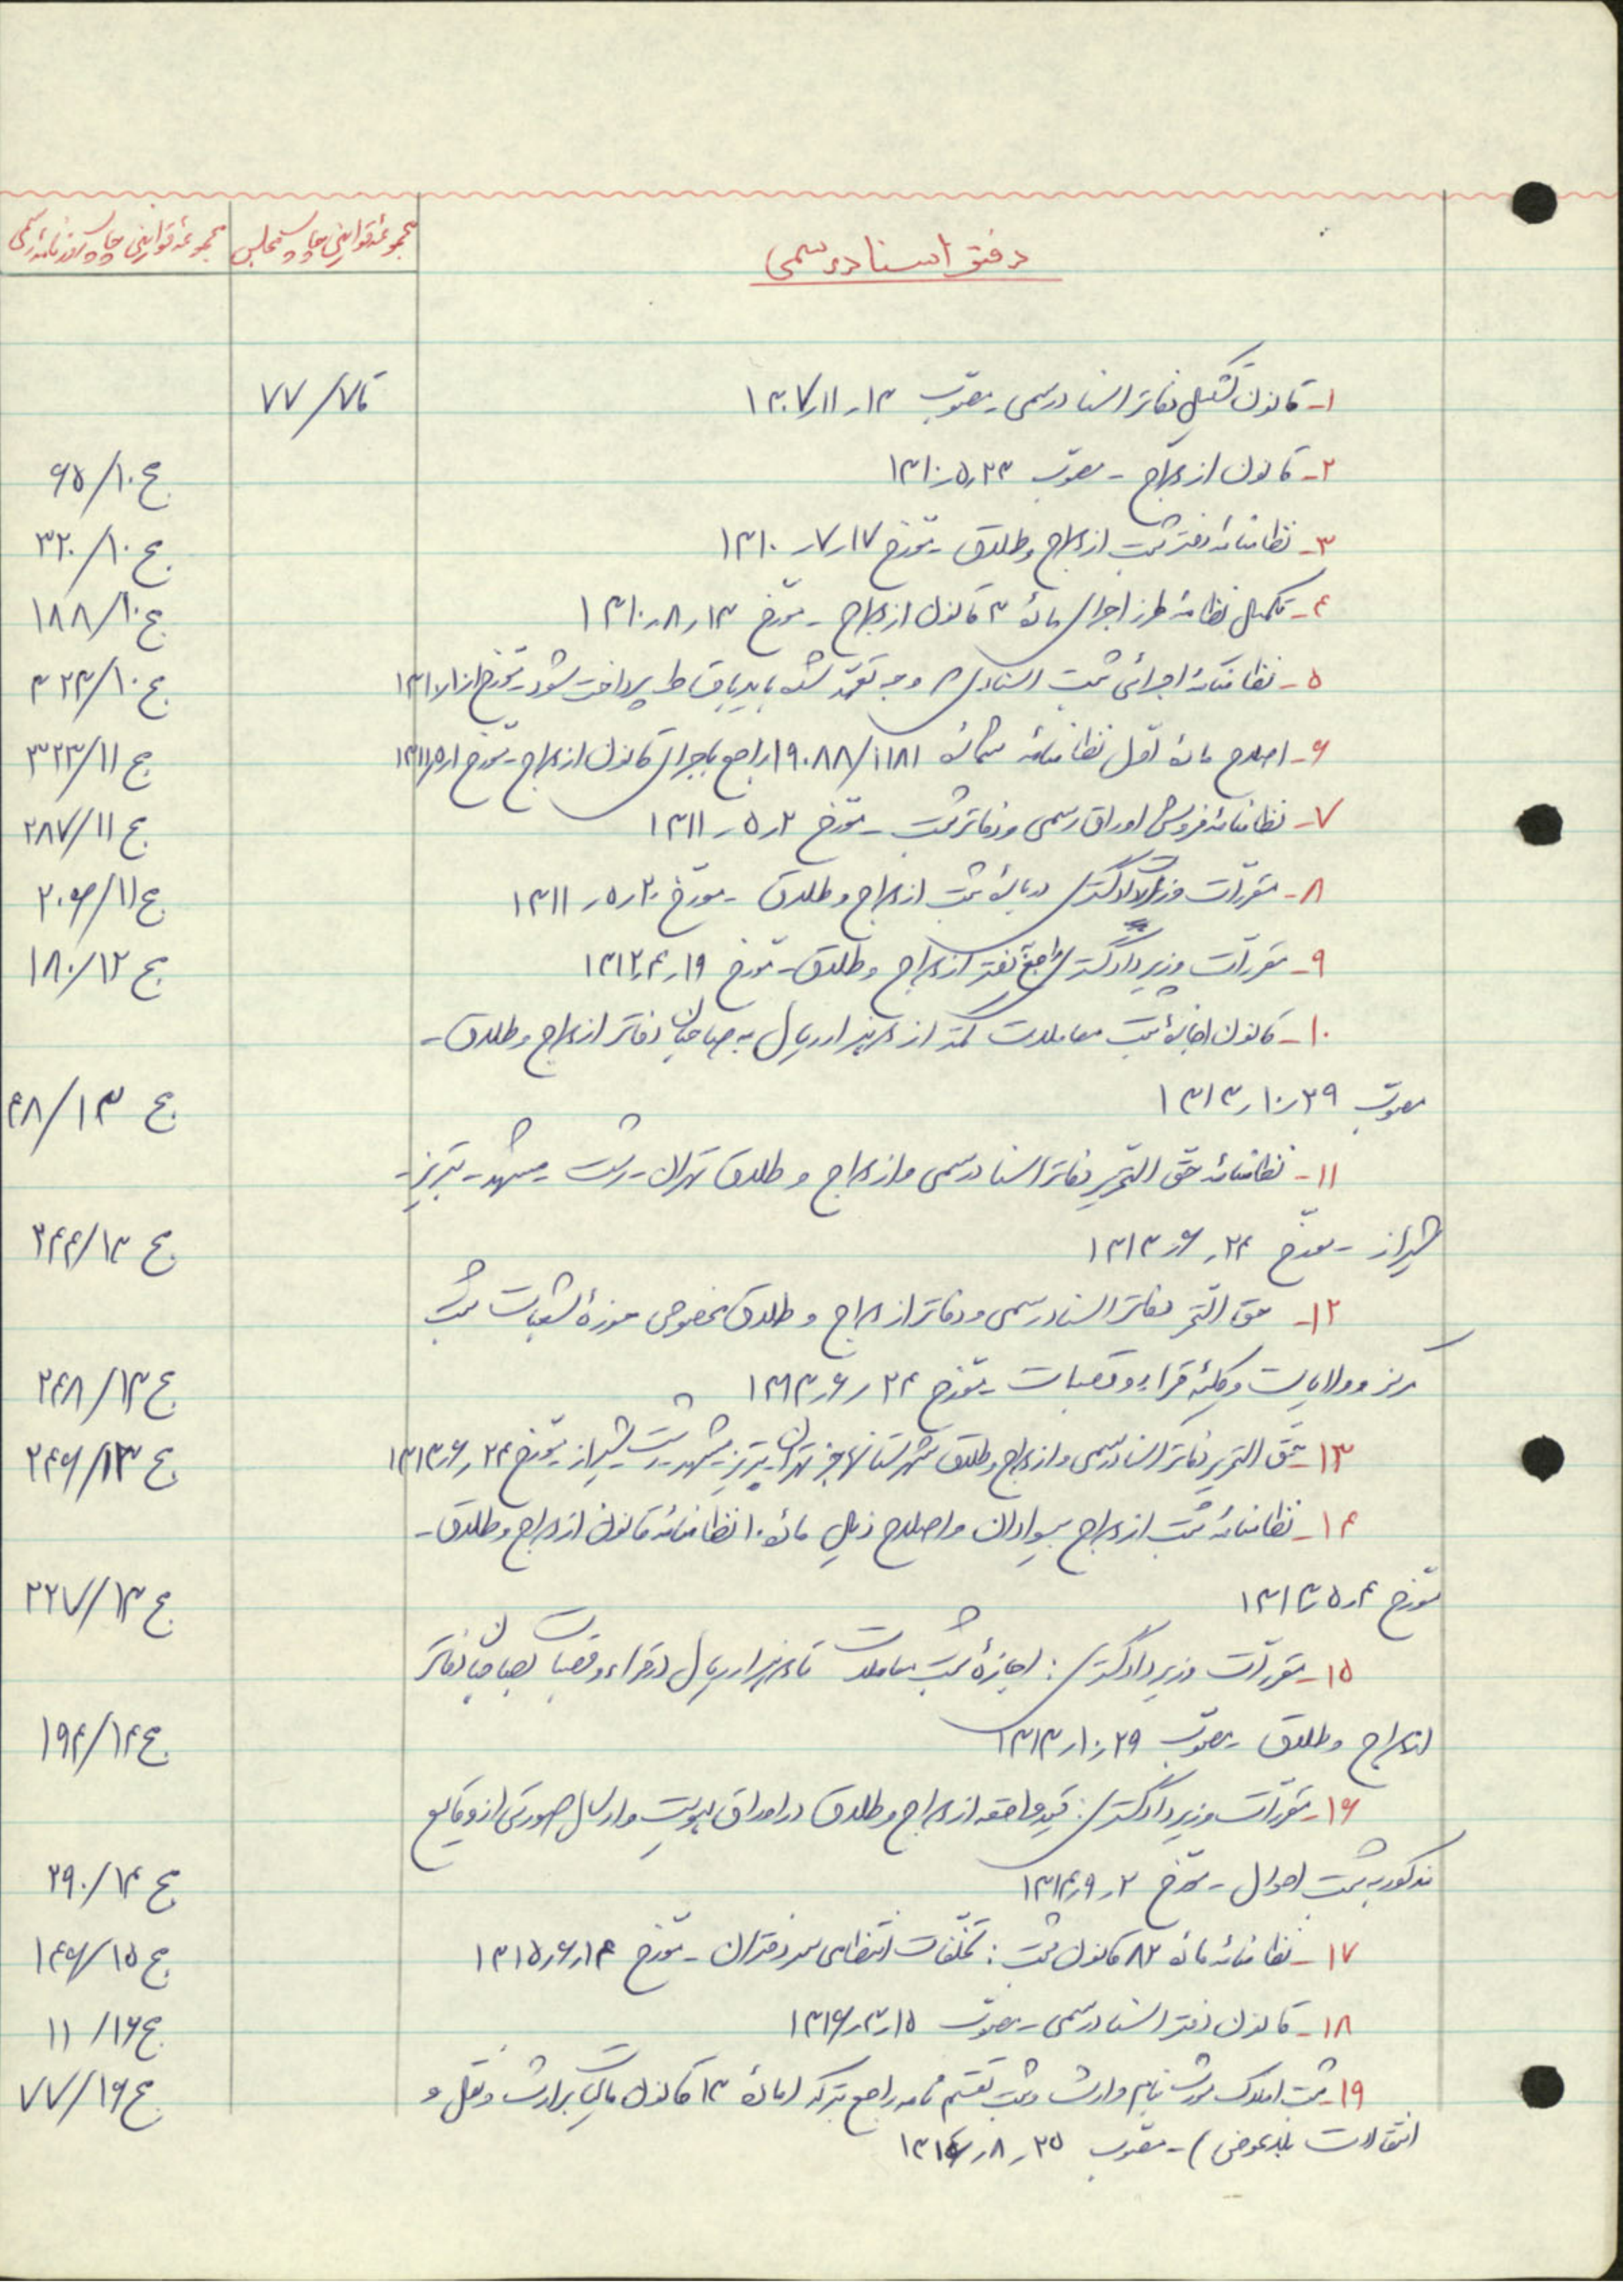 دفتر اسناد رسمی
مجموعهٔ قوانین چاپ مجلس
مجموعهٔ قوانین چاپ روزنامهٔ رسمی
۱- قانون تشکیل دفاتر اسناد رسمی - مصوّب ۱۳ر۱۱ر۱۳۰۷ ق۷/ ۷۷
۲- قانون ازدواج - مصوّب ۲۳ر۵ر۱۳۱۰ ج۱۰/ ۶۵
۳- نظامنامهٔ دفتر ثبت ازدواج و طلاق - مورّخ ۱۷ر۷ر۱۳۱۰ ج۱۰/ ۳۲۰
۴- تکمیل نظامنامهٔ طرز اجرای مادّهٔ ۳ قانون ازدواج - مورّخ ۱۳ر۸ر۱۳۱۰ ج۱۰/ ۱۸۸
۵- نظامنامهٔ اجرائی ثبت اسنادی که وجه تعهّد شده باید باقساط پرداخت شود - مورّخ ج۱۰/ ۳۲۳
۶- اصلاح مادّهٔ اوّل نظامنامهٔ شمارهٔ ۱۹۰۸۸/۱۱۸۱ راجع باجرای قانون ازدواج - مورّخ ج۱۱/ ۳۲۳
۷- نظامنامهٔ فروش اوراق رسمی و دفاتر ثبت - مورّخ ۲ر۵ر۱۳۱۱ ج۱۱/ ۲۸۷
۸- مقرّرات وزارت دادگستری دربارهٔ ثبت ازدواج و طلاق - مورّخ ۲۰ر۵ر۱۳۱۱ ج۱۱/ ۲۰۶
۹- مقرّرات وزیر دادگستری راجع بدفتر ازدواج و طلاق - مورّخ ۱۹ر۴ر۱۳۱۲ ج۱۲/ ۱۸۰
۱۰- قانون اجازهٔ ثبت معاملات کمتر از دو هزار ریال به صاحبان دفاتر ازدواج و طلاق -
مصوّب ۲۹ر۱۰ر۱۳۱۳ ج۱۳/ ۴۸
۱۱- نظامنامهٔ حقّ التحریر دفاتر اسناد رسمی و ازدواج و طلاق تهران - رشت - مشهد - تبریز -
شیراز - مورّخ ۲۴ر۶ر۱۳۱۳ ج۱۳/ ۲۴۴
۱۲- حق التّحریر دفاتر اسناد رسمی و دفاتر ازدواج و طلاق مخصوص حوزهٔ شعبات ثبت
مرکز و ولایات و کلیّه قراء و قصبات - مورّخ ۲۴ر۶ر۱۳۱۳ ج۱۳/ ۲۴۸
۱۳- حقّ التحریر دفاتر اسناد رسمی و ازدواج و طلاق شهرستانها جز تهران، تبریز، مشهد، رشت، شیراز - مورّخ ۲۴ر۶ر۱۳۱۳ ج۱۳/ ۲۴۶
۱۴- نظامنامهٔ ثبت ازدواج بیسوادان و اصلاح ذیل مادّهٔ ۱۰ نظامنامهٔ قانون ازدواج و طلاق -
مورّخ ۴ر۵ر۱۳۱۳ ج۱۳/ ۲۲۷
۱۵- مقرّرات وزیر دادگستری: اجازهٔ ثبت معاملات تا دو هزار ریال در قراء و قصبات بصاحبان دفاتر
ازدواج و طلاق - مصوّب ۲۹ر۱۰ر۱۳۱۳ ج۱۴/ ۱۹۴
۱۶- مقرّرات وزیر دادگستری: قید واقعه ازدواج و طلاق در اوراق هویّت و ارسال صورتی از وقایع
مذکور به ثبت احوال - مورّخ ۲ر۹ر۱۳۱۴ ج۱۴/ ۲۹۰
۱۷- نظامنامهٔ مادّهٔ ۸۲ قانون ثبت: تخلّفات انتظامی سردفتران - مورّخ ۱۴ر۶ر۱۳۱۵ ج۱۵/ ۱۴۶
۱۸- قانون دفتر اسناد رسمی - مصوّب ۱۵ر۳ر۱۳۱۶ ج۱۶/ ۱۱
۱۹- ثبت املاک مورث بنام وارث و ثبت تقسیم نامه راجع بترکه (مادّهٔ ۱۳ قانون مالیات بر ارث و نقل و ج۱۶/ ۷۷
انتقالات بلاعوض) - مصوّب ۲۵ر۸ر۱۳۱۶